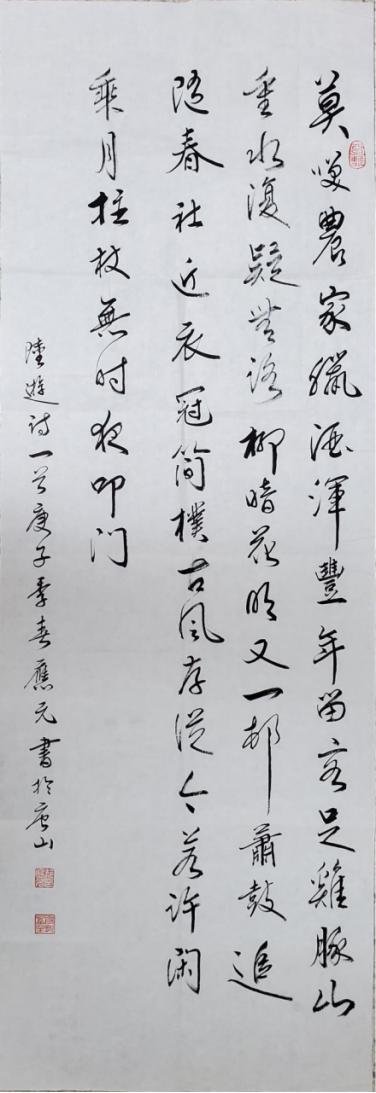 莫笑農家臘酒渾豐年留客足雞豚山
重水復疑無路柳暗花明又一邨蕭鼓追
隨春社近衣冠簡樸古風存從今若許閑
乘月拄杖無时夜叩门
陸遊诗一首庚子季春應元書於唐山